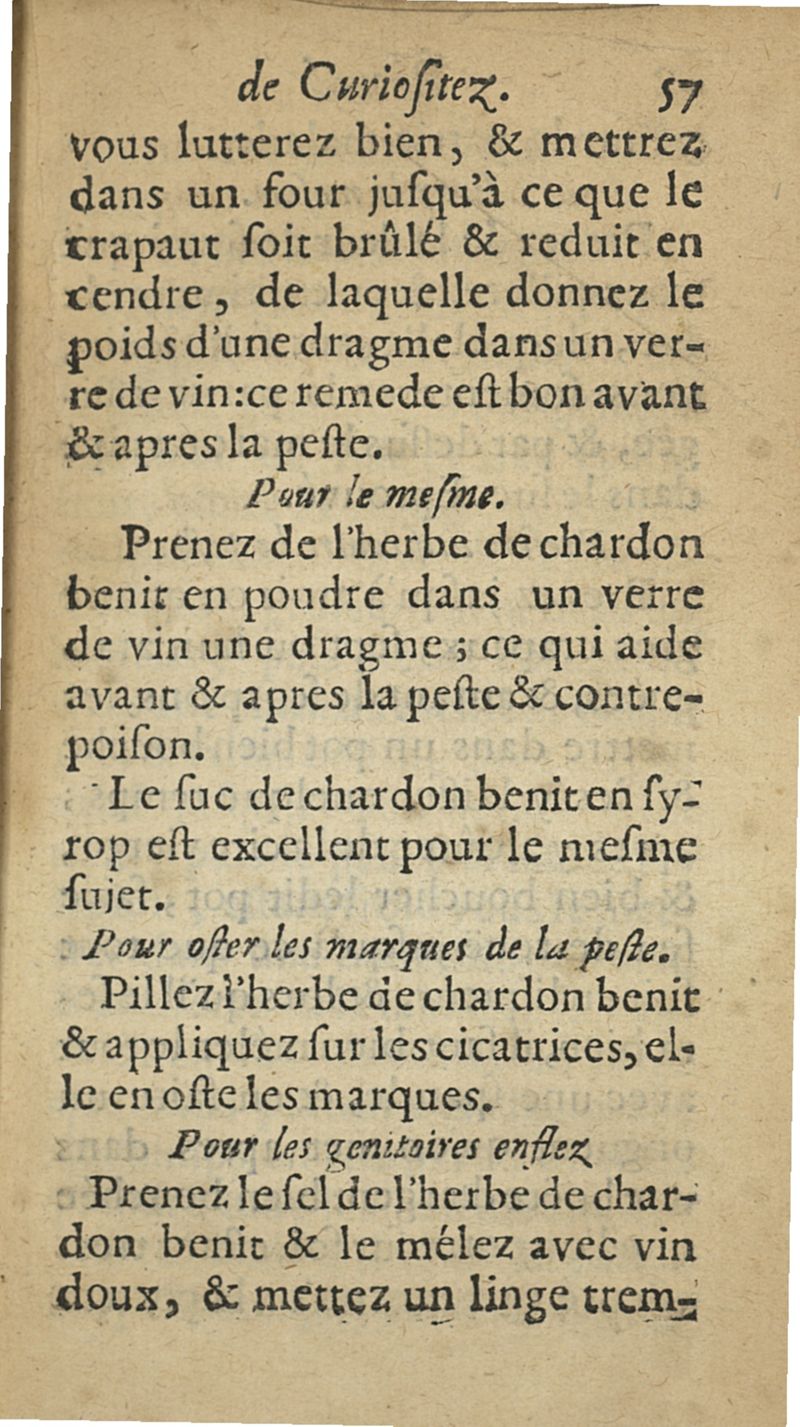 de Curioſitez. 57
vous lutterez bien, & mettrez
dans un four juſqu'à ce que le
crapaut ſoit brûlé & reduit en
cendre, de laquelle donnez le
poids d'une dragme dans un ver-
re de vin: ce remede eſt bon avant
& apres la peſte.
Pour le meſme.
Prenez de l'herbe de chardon
benit en poudre dans un verre
de vin une dragme; ce qui aide
avant & apres la peſte & contre-
poiſon.
Le ſuc de chardon benit en ſy-
rop eſt excellent pour le meſme
ſujet.
Pour oſter les marques de la peſte.
Pillez l'herbe de chardon benit
& appliquez ſur les cicatrices, el-
le en oſte les marques.
Pour les genitoires enflez
Prenez le ſel de l'herbe de char-
don benit & le mélez avec vin
doux, & mettez un linge trem-